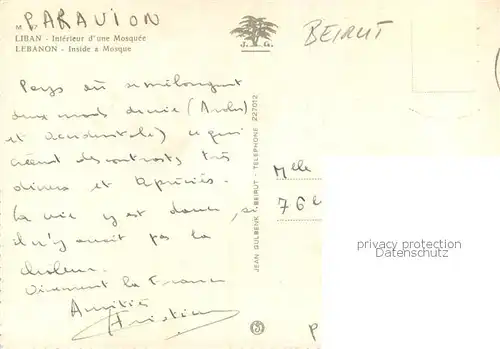 PAR AVION
M 7
LIBAN - Intérieur d'une Mosquée
LEBANON - Inside a Mosque
J. G.
BEIRUT
Pays où se mélangent
deux mods de vie (Arabe
et occidentale) ce qui
créent des contrasts très
divers et
La vie y est douce, si
il n'y avait pas la
chaleur.
Vivement la France
Amitiés
Christian
JEAN GULBENK - BEIRUT - TELEPHONE 227012
Mlle
76
privacy protection
P